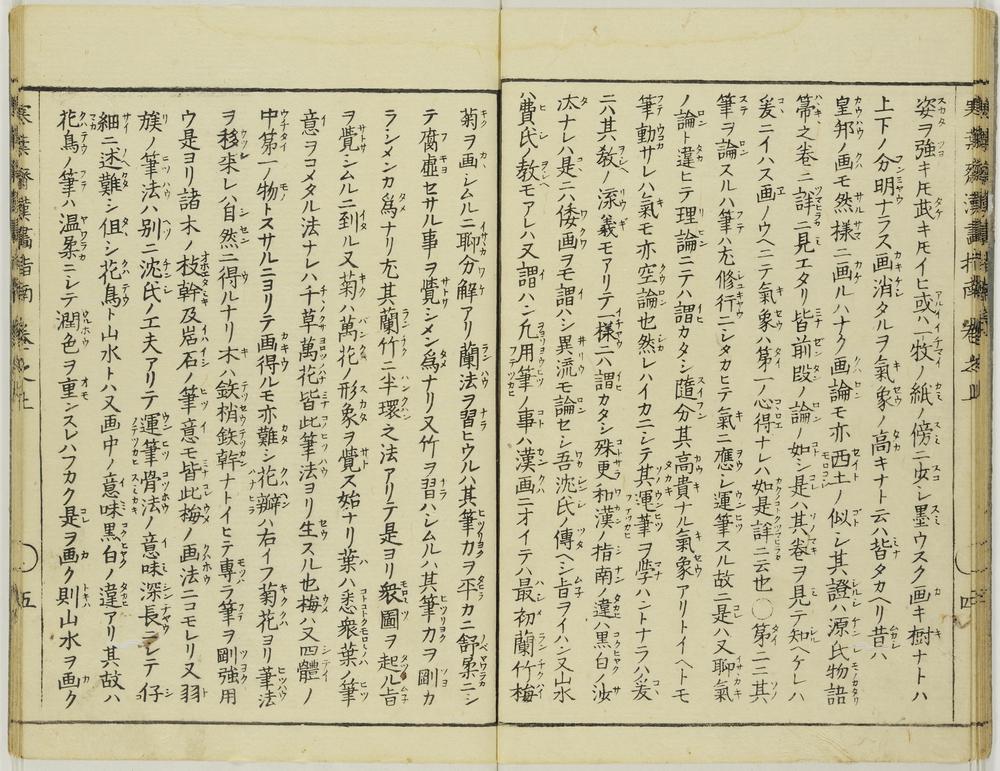 姿ヲ強キモ武キモイヒ或ハ一牧ノ紙ノ傍ニ少シ墨ウスク画キ樹ナトハ
上下ノ分明ナラス画消タルヲ氣象ノ高キナト云ハ皆タカヘリ昔ハ
皇邦ノ画モ然様ニ画ルハナク画論モ亦西土ニ似シ其證ハ源氏物語
箒之巻ニ詳ニ見エタリ皆前段ノ論ノ如シ是ハ其巻ヲ見テ知ヘケレハ
爰ニイハス画ノウヘニテ氣象ハ第一ノ心得ナレハ如是詳ニ云也〇第二ニ其
筆ヲ論スルハ筆ハ尤修行ニシタカヒテ氣ニ應シ運筆スル故ニ是ハ又聊氣
ノ論ト違ヒテ理論ニテハ謂カタシ隨分其高貴ナル氣象アリトイヘトモ
筆動サレハ氣モ亦空論也然レハイカニシテ其運筆ヲ学ハントナラハ爰
ニハ其教ノ流義モアリテ一様ニハ謂カタシ殊更和漢ノ指南ノ違ハ黒白ノ沙
汰ナレハ是ニハ倭画ヲモ謂ハシ異流モ論セシ吾沈氏ノ傳ヘシ旨ヲイハン又山水
ハ費氏ノ教モアレハ又謂ハン凡用筆ノ事ハ漢画ニオイテハ最初蘭竹梅
菊ヲ画シムルニ聊分解アリ蘭法ヲ習ヒウルハ其筆カヲ平カニ舒柔ニシ
テ腐虚セサル事ヲ覺シメン為ナリ又竹ヲ習ハシムルハ其筆力ヲ剛カ
ラシメンカ為ナリ尤其蘭竹ニ半環之法アリテ是ヨリ衆圖ヲ起ル旨
ヲ覺シムルニ到ル又菊ハ萬花ノ形象ヲ覺ス始ナリ葉ハ悉衆葉ノ筆
意ヲコメタル法ナレハ千草萬花皆此筆法ヨリ生スル也梅ハ又四體ノ
中第一ノ物トスサルニヨリテ画得ルモ亦難シ花瓣ハ右イフ菊花ヨリ筆法
ヲ移来レハ自然ニ得ルナリ木ハ鉄梢鉄幹ナトイヒテ專ラ筆ヲ剛強用
ウ是ヨリ諸木ノ枝幹及岩石ノ筆意モ皆此梅ノ画法ニコモレリ又羽
簇ノ筆法ハ別ニ沈氏ノ工夫アリテ運筆骨法ノ意味深長ニシテ仔
細ニ述難シ但シ花鳥ト山水トハ又画中ノ意味黒白ノ違アリ其故ハ
花鳥ノ筆ハ温柔ニシテ潤色ヲ重ンスレハフカク是ヲ画ク則山水ヲ画ク
五